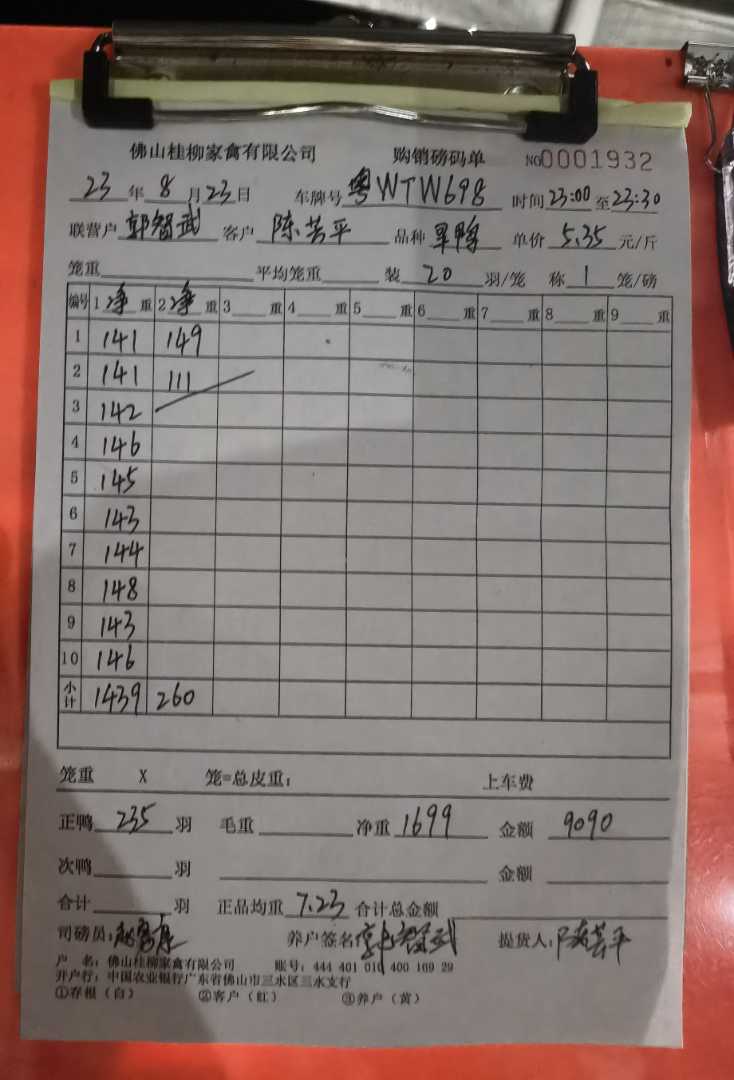 佛山桂柳家禽有限公司 购销磅码单 NO0001932
23年8月23日 车牌号粤WTW698 时间23:00至23:30
联营户郭智武 客户陈芸平 品种旱鸭 单价5.35元/斤
笼重 平均笼重 装20羽/笼 称1笼/磅
编号 1净重 2净重 3重 4重 5重 6重 7重 8重 9重
1 141 149
2 141 111
3 142
4 146
5 145
6 143
7 144
8 148
9 143
10 146
小计 1439 260
笼重 X 笼=总皮重: 上车费
正鸭235羽 毛重 净重1699 金额9090
次鸭 羽 金额
合计 羽 正品均重7.23 合计总金额
司磅员: 养户签名郭智武 提货人:陈芸平
户 名: 佛山桂柳家禽有限公司 账号: 444 401 010 400 169 29
开户行: 中国农业银行广东省佛山市三水区三水支行
①存根(白) ②客户(红) ③养户(黄)